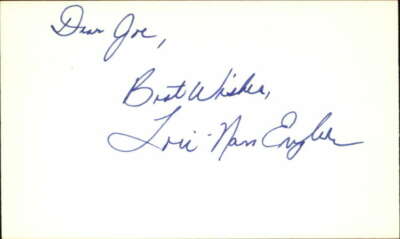 Dear Joe,
Best Wishes,
Lori-Nan Engler